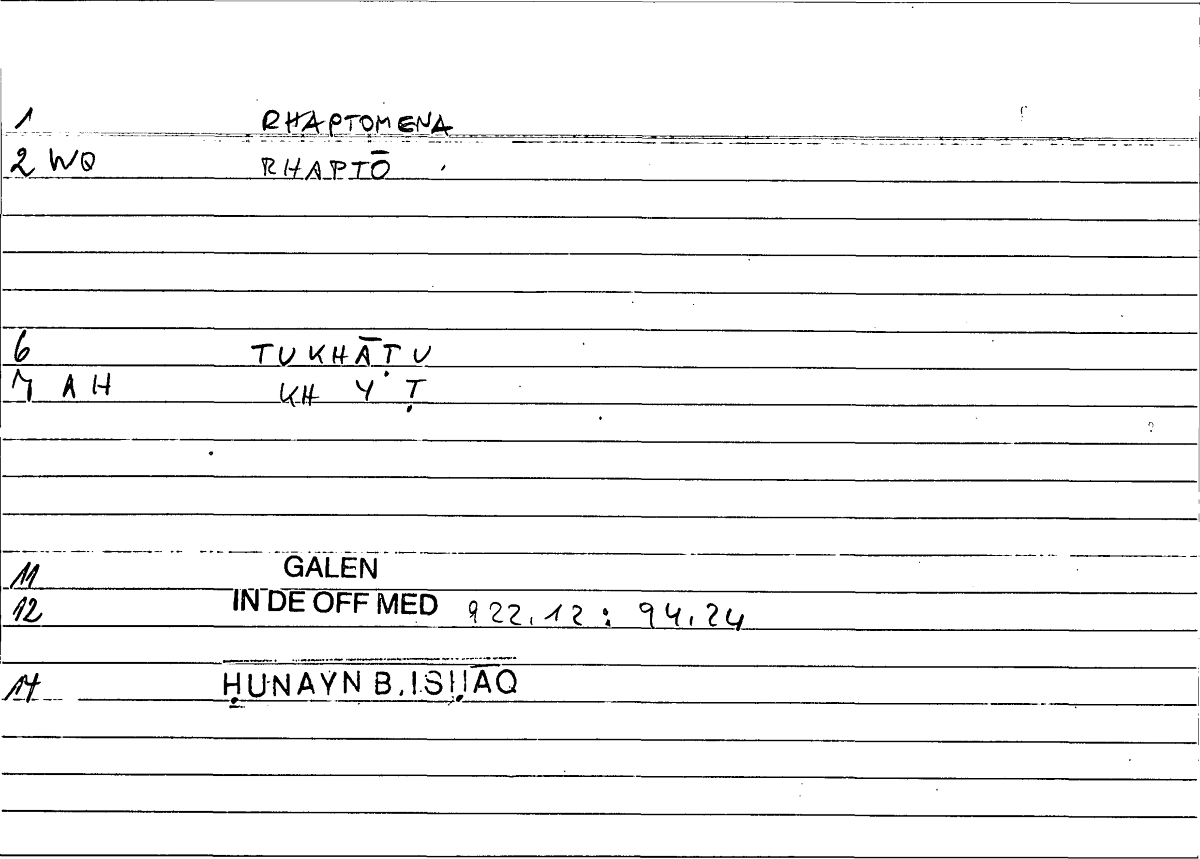 1 RHAPTOMENA
2 WQ RHAPTŌ
6 TUKHĀṬU
7 AH KH Y Ṭ
11 GALEN
12 IN DE OFF MED 922.12 : 94.24
14 ḤUNAYN B. ISḤĀQ